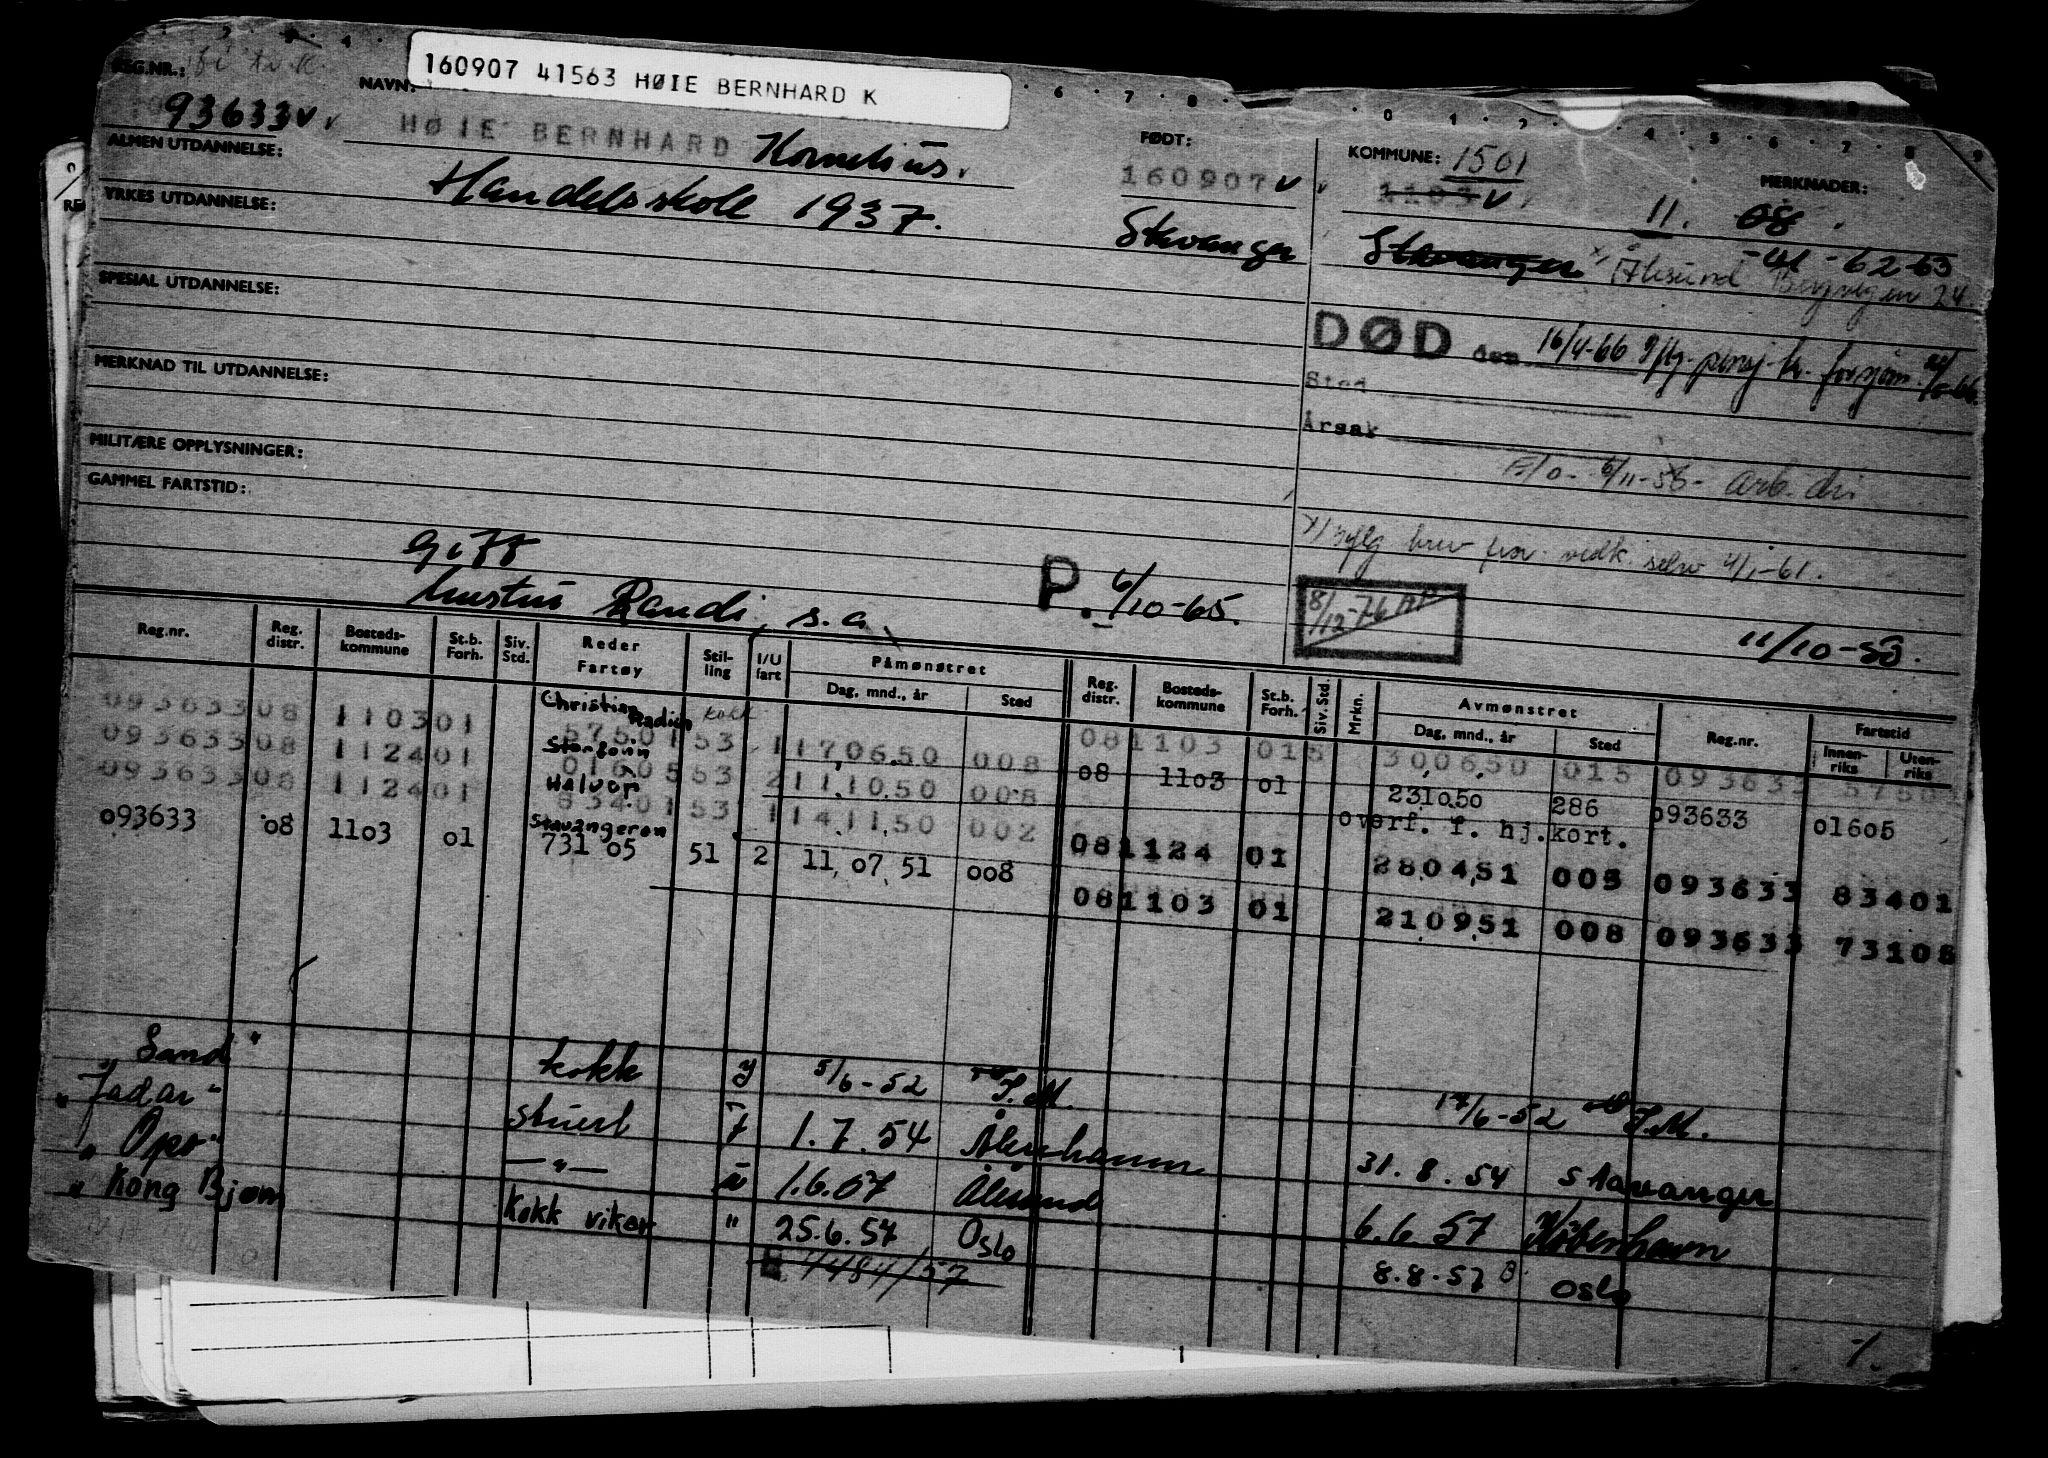 160907 41563 HØIE BERNHARD K
REG.NR.:
93633
NAVN:
HØIE BERNHARD Kornelius.
FØDT:
160907
Stavanger
KOMMUNE: 1501
1103
Stavanger Ålesund Bergvegen 24
MERKNADER:
11. 08
-41-62-63
ALMEN UTDANNELSE:
Handelsskole 1937.
YRKES UTDANNELSE:
SPESIAL UTDANNELSE:
MERKNAD TIL UTDANNELSE:
MILITÆRE OPPLYSNINGER:
GAMMEL FARTSTID:
DØD den 16/4-66
Sted
Årsak
6/11-56- arb. dir
brev fra vedk. selv 4/1-61.
8/12-76
11/10-53.
Gift
hustru Randi, s.a.
P. 6/10-65.
Reg.nr. Reg. distr. Bosteds-kommune St.b. Forh. Siv. Std. Reder Fartøy Stil-ling I/U fart Påmønstret Dag, mnd., år Sted Reg. distr. Bosteds-kommune St.b. Forh. Siv. Std. Mrkn. Avmønstret Dag, mnd., år Sted Reg.nr. Fartstid Innen-riks Uten-riks
093633 08 1103 01 Christian Radich 57501 53 kokk 1 170650 008 081103 01 300650 015 093633 57501
093633 08 1124 01 Storfonn 01605 53 2 111050 008 08 1103 01 231050 286 093633 01605
093633 08 1124 01 Halvor 83401 53 1 141150 002 overf. f. hj.kort.
081124 01 280451 005 093633 83401
093633 08 1103 01 Stavangeren 731 05 51 2 11 07 51 008 081103 01 210951 008 093633 73105
"Sand" kokk 5/6-52 J.M. 17/6-52 J.M.
"Jadar" stuert I 1.7.54 Åkrehamn 31.8.54 Stavanger
"Opr" —"— u 1.6.57 Ålesund 6.6.57 København
"Kong Bjørn Kokk vikar " 25.6.57 Oslo 8.8.57 Oslo
1484/57